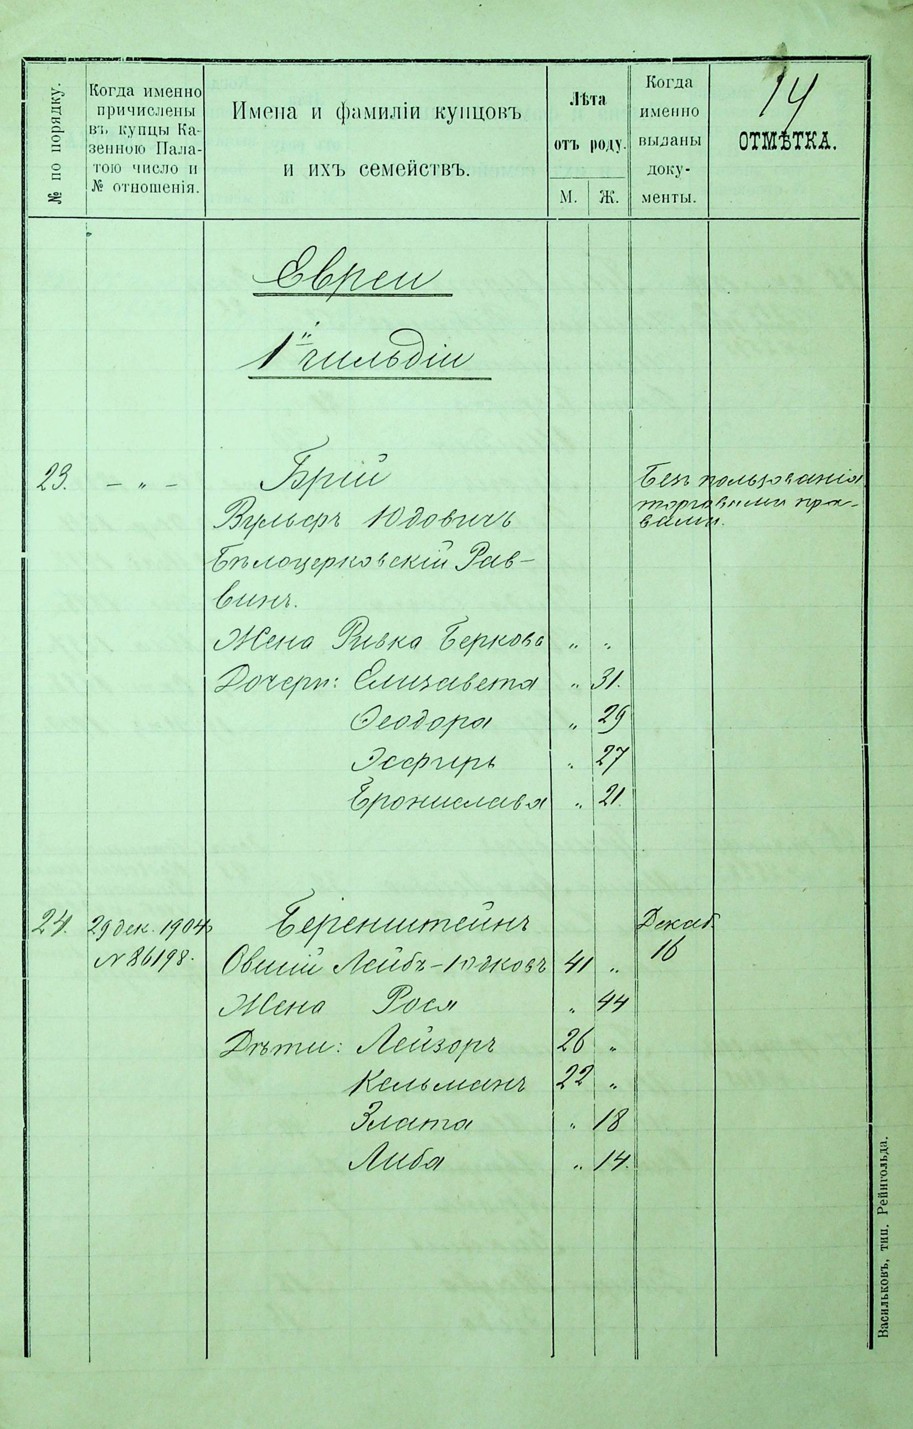 14
№ по порядку.
Когда именно
причислены
въ купцы Ка-
зенною Пала-
тою число и
№ отношенія.
Имена и фамиліи купцовъ
и ихъ семействъ.
Лѣта
отъ роду.
М. Ж.
Когда
именно
выданы
доку-
менты.
ОТМѢТКА.
Евреи
1й гильдіи
23. – „ – Брій Безъ пользованія
торговыми пра-
вами.
Вульфъ Юдовичъ
Бѣлоцерковскій Рав-
винъ.
Жена Ривка Беркова „ „
Дочери: Елизавета „ 31.
Ѳеодора „ 29
Эсфирь „ 27
Бронислава „ 21.
24. 29 дек. 1904 Беренштейнъ Декаб.
№ 86198. 16
Овшій Лейбъ-Юдковъ 41 „
Жена Рося „ 44
Дѣти: Лейзоръ 26 „
Кельманъ 22 „
Злата „ 18
Либа „ 14.
Васильковъ, тип. Рейнгольда.